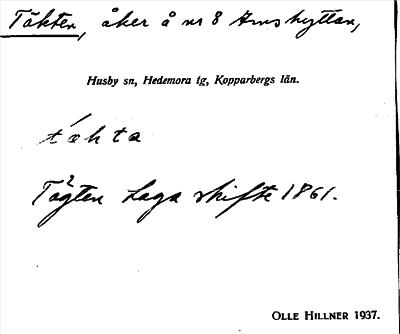 Täkten, åker å nr 8 Amshyttan,
Husby sn, Hedemora tg, Kopparbergs län.
tæ̀kta
Tägten Laga skifte 1861.
OLLE HILLNER 1937.